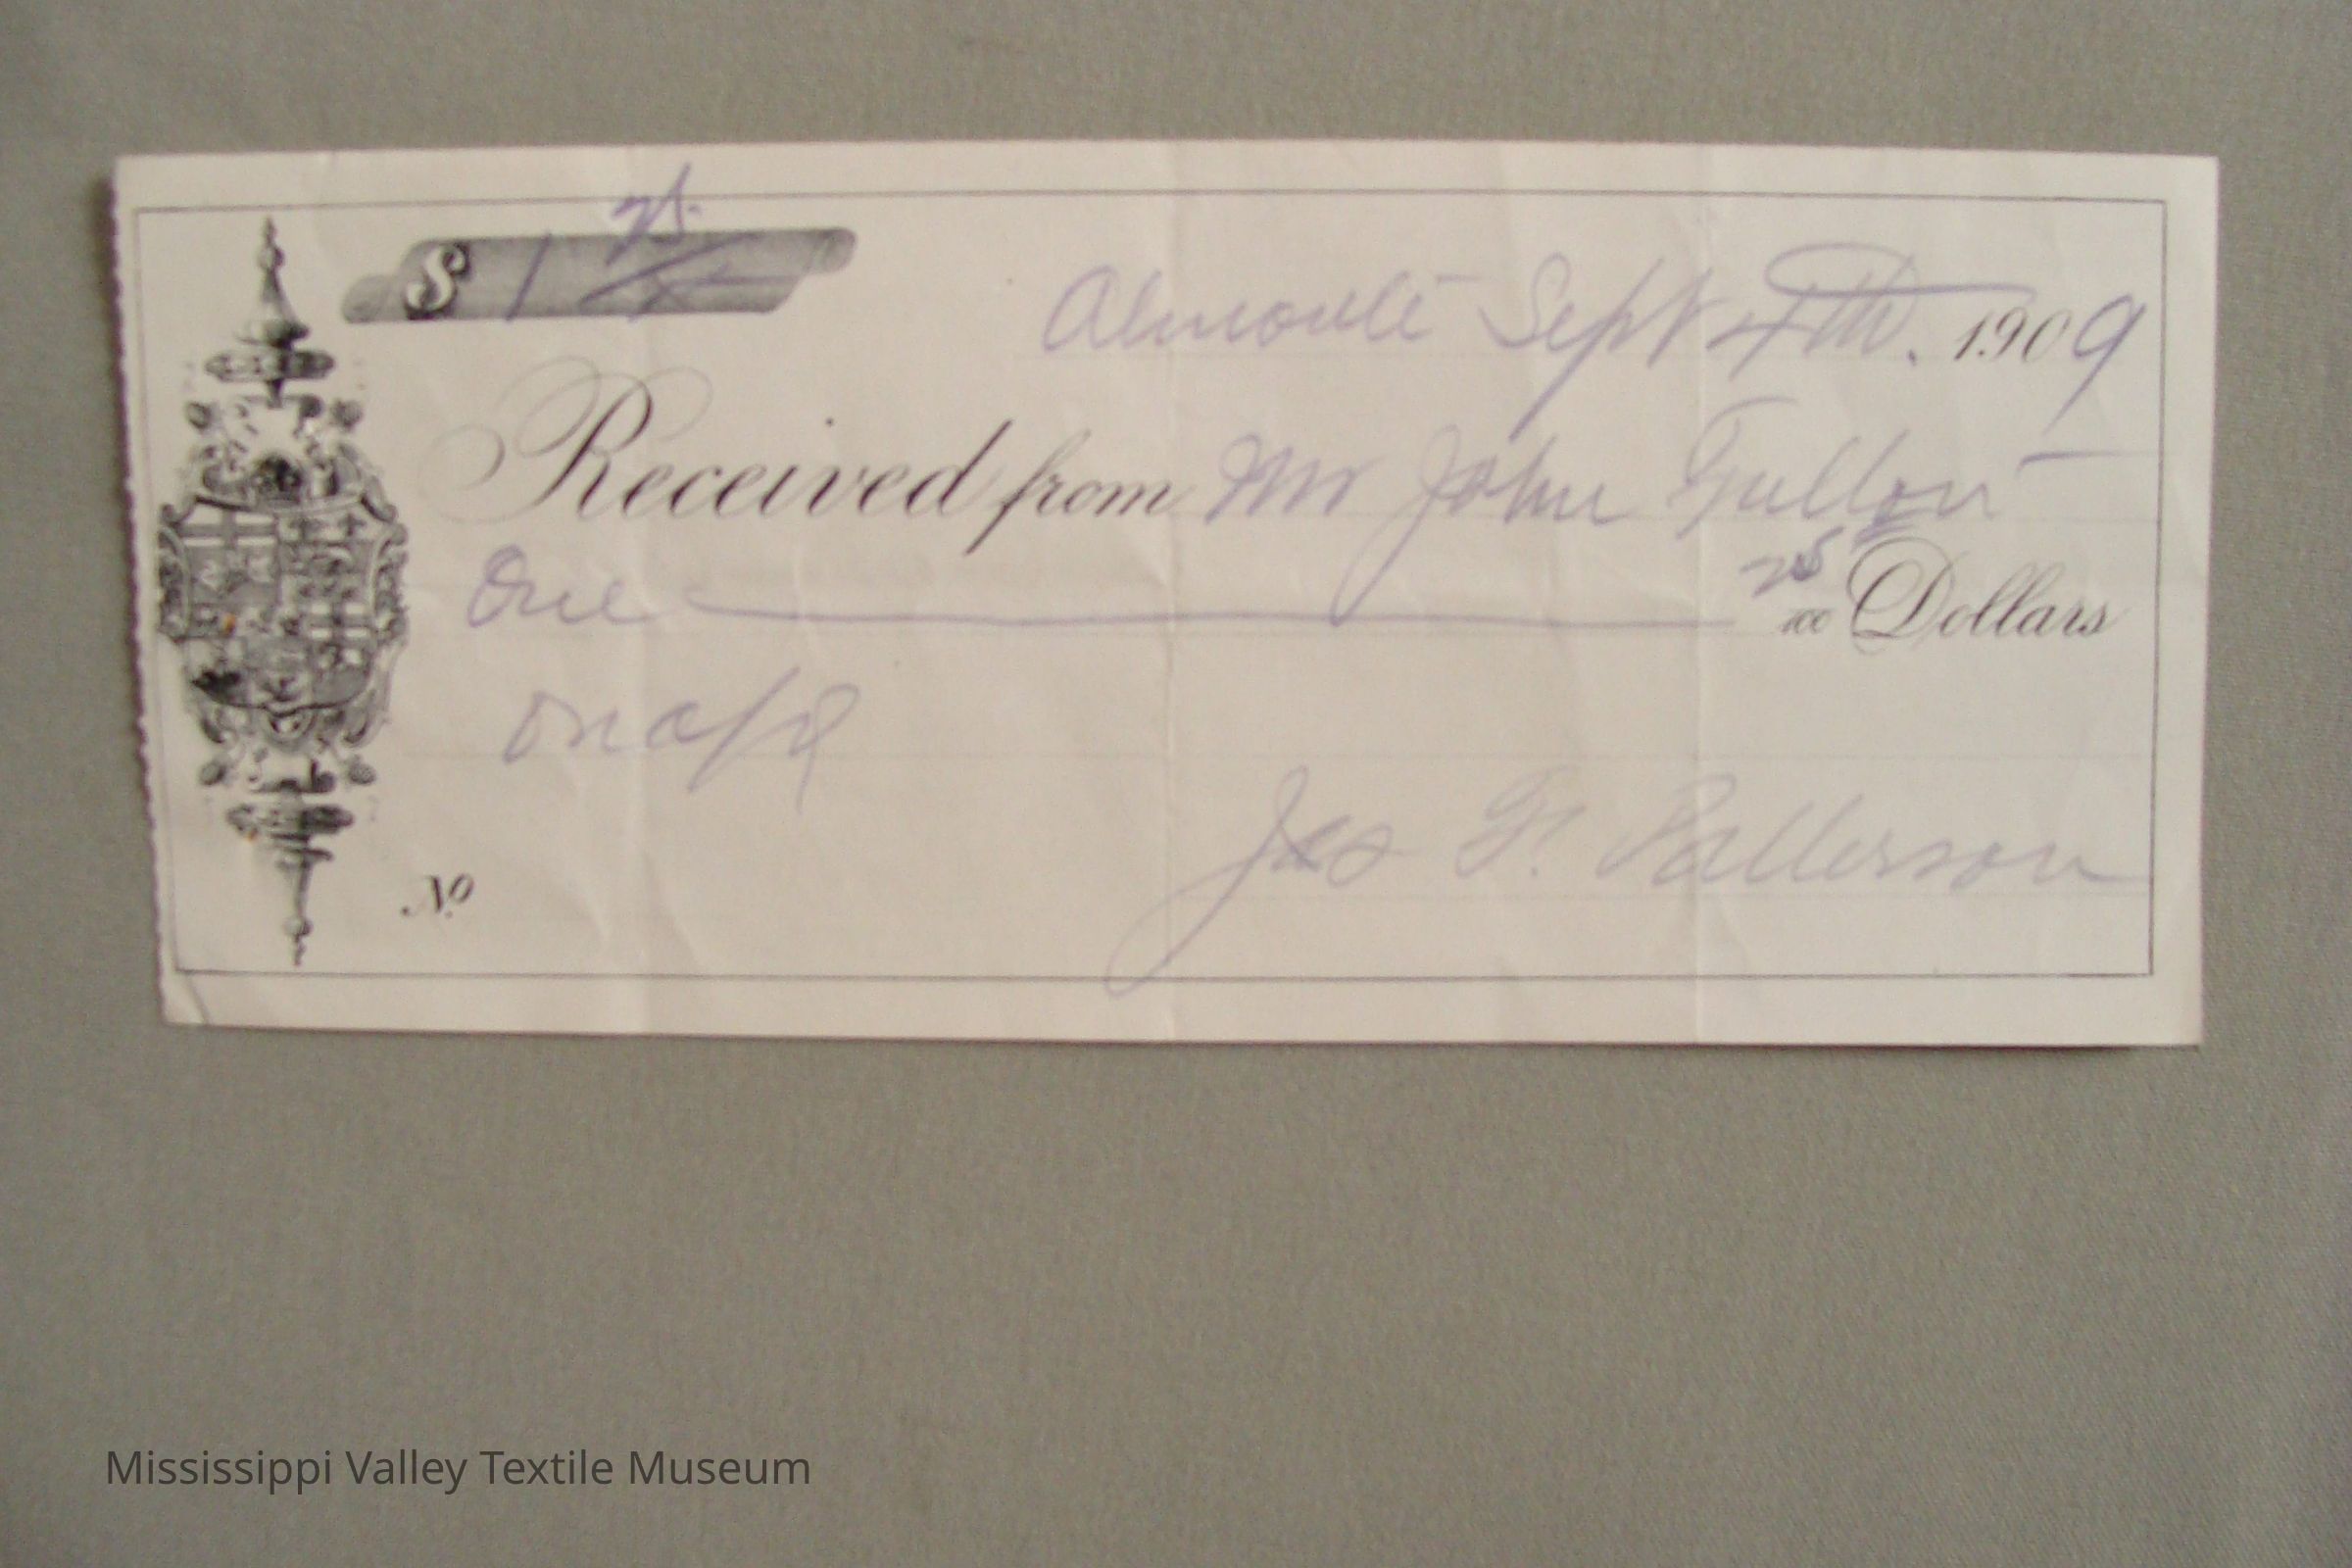 $ 1 25
Almonte Sept 4th. 1909
Received from Mr John Fulton
One 25/100 Dollars
on a/c
Jas F. Patterson
No
Mississippi Valley Textile Museum